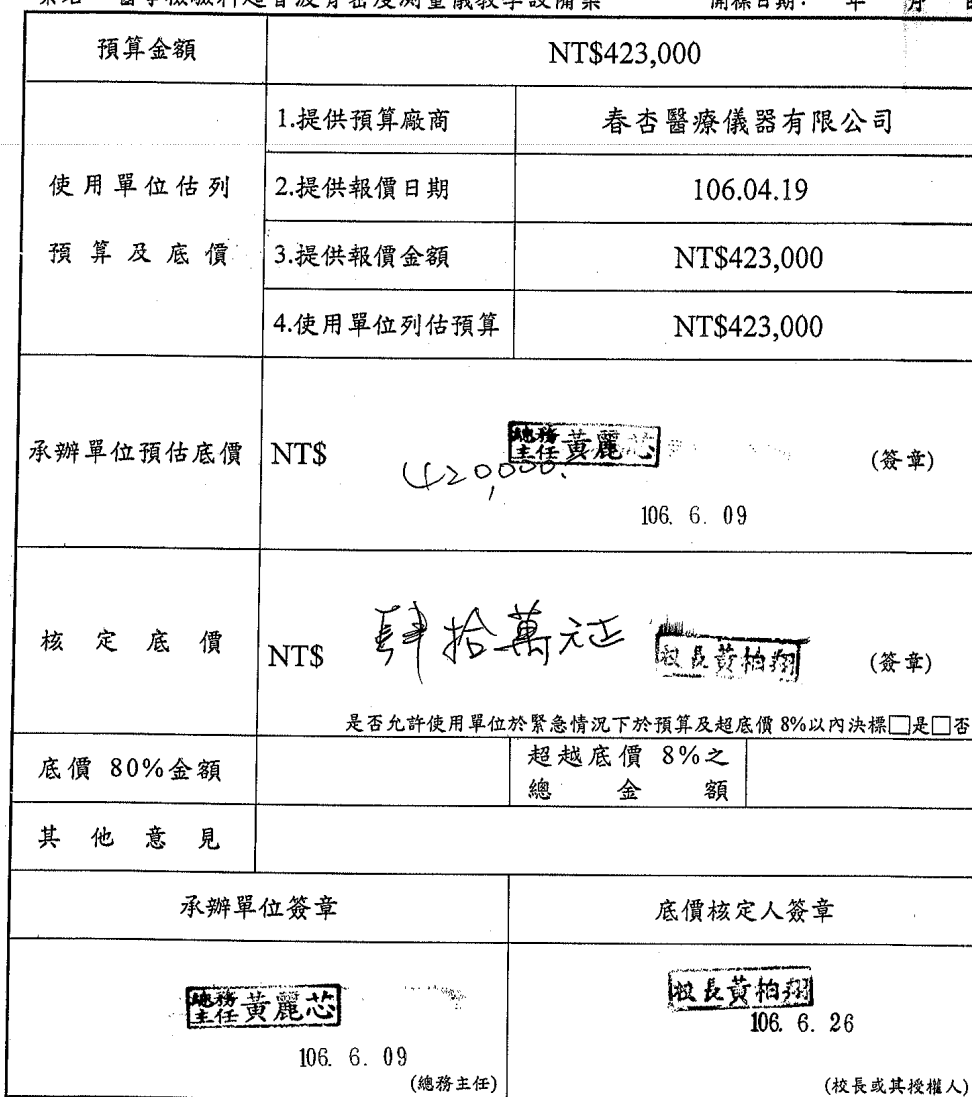 醫學檢驗科超音波骨密度測量儀教學設備案 開標日期： 年 月 日
預算金額 NT$423,000
使用單位估列預算及底價
1.提供預算廠商 春杏醫療儀器有限公司
2.提供報價日期 106.04.19
3.提供報價金額 NT$423,000
4.使用單位列估預算 NT$423,000
承辦單位預估底價 NT$ 420,000. 總務主任黃麗芯 (簽章)
106. 6. 09
核定底價 NT$ 肆拾萬元正 校長黃柏翔 (簽章)
是否允許使用單位於緊急情況下於預算及超底價 8%以內決標□是□否
底價 80%金額 超越底價 8%之總金額
其他意見
承辦單位簽章 底價核定人簽章
總務主任黃麗芯 校長黃柏翔
106. 6. 09 106. 6. 26
(總務主任) (校長或其授權人)